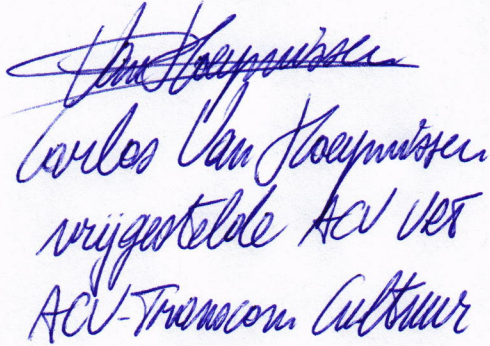 Van Hoeymissen
Carlos Van Hoeymissen
vrijgestelde ACV VRT
ACV-Transcom Cultuur